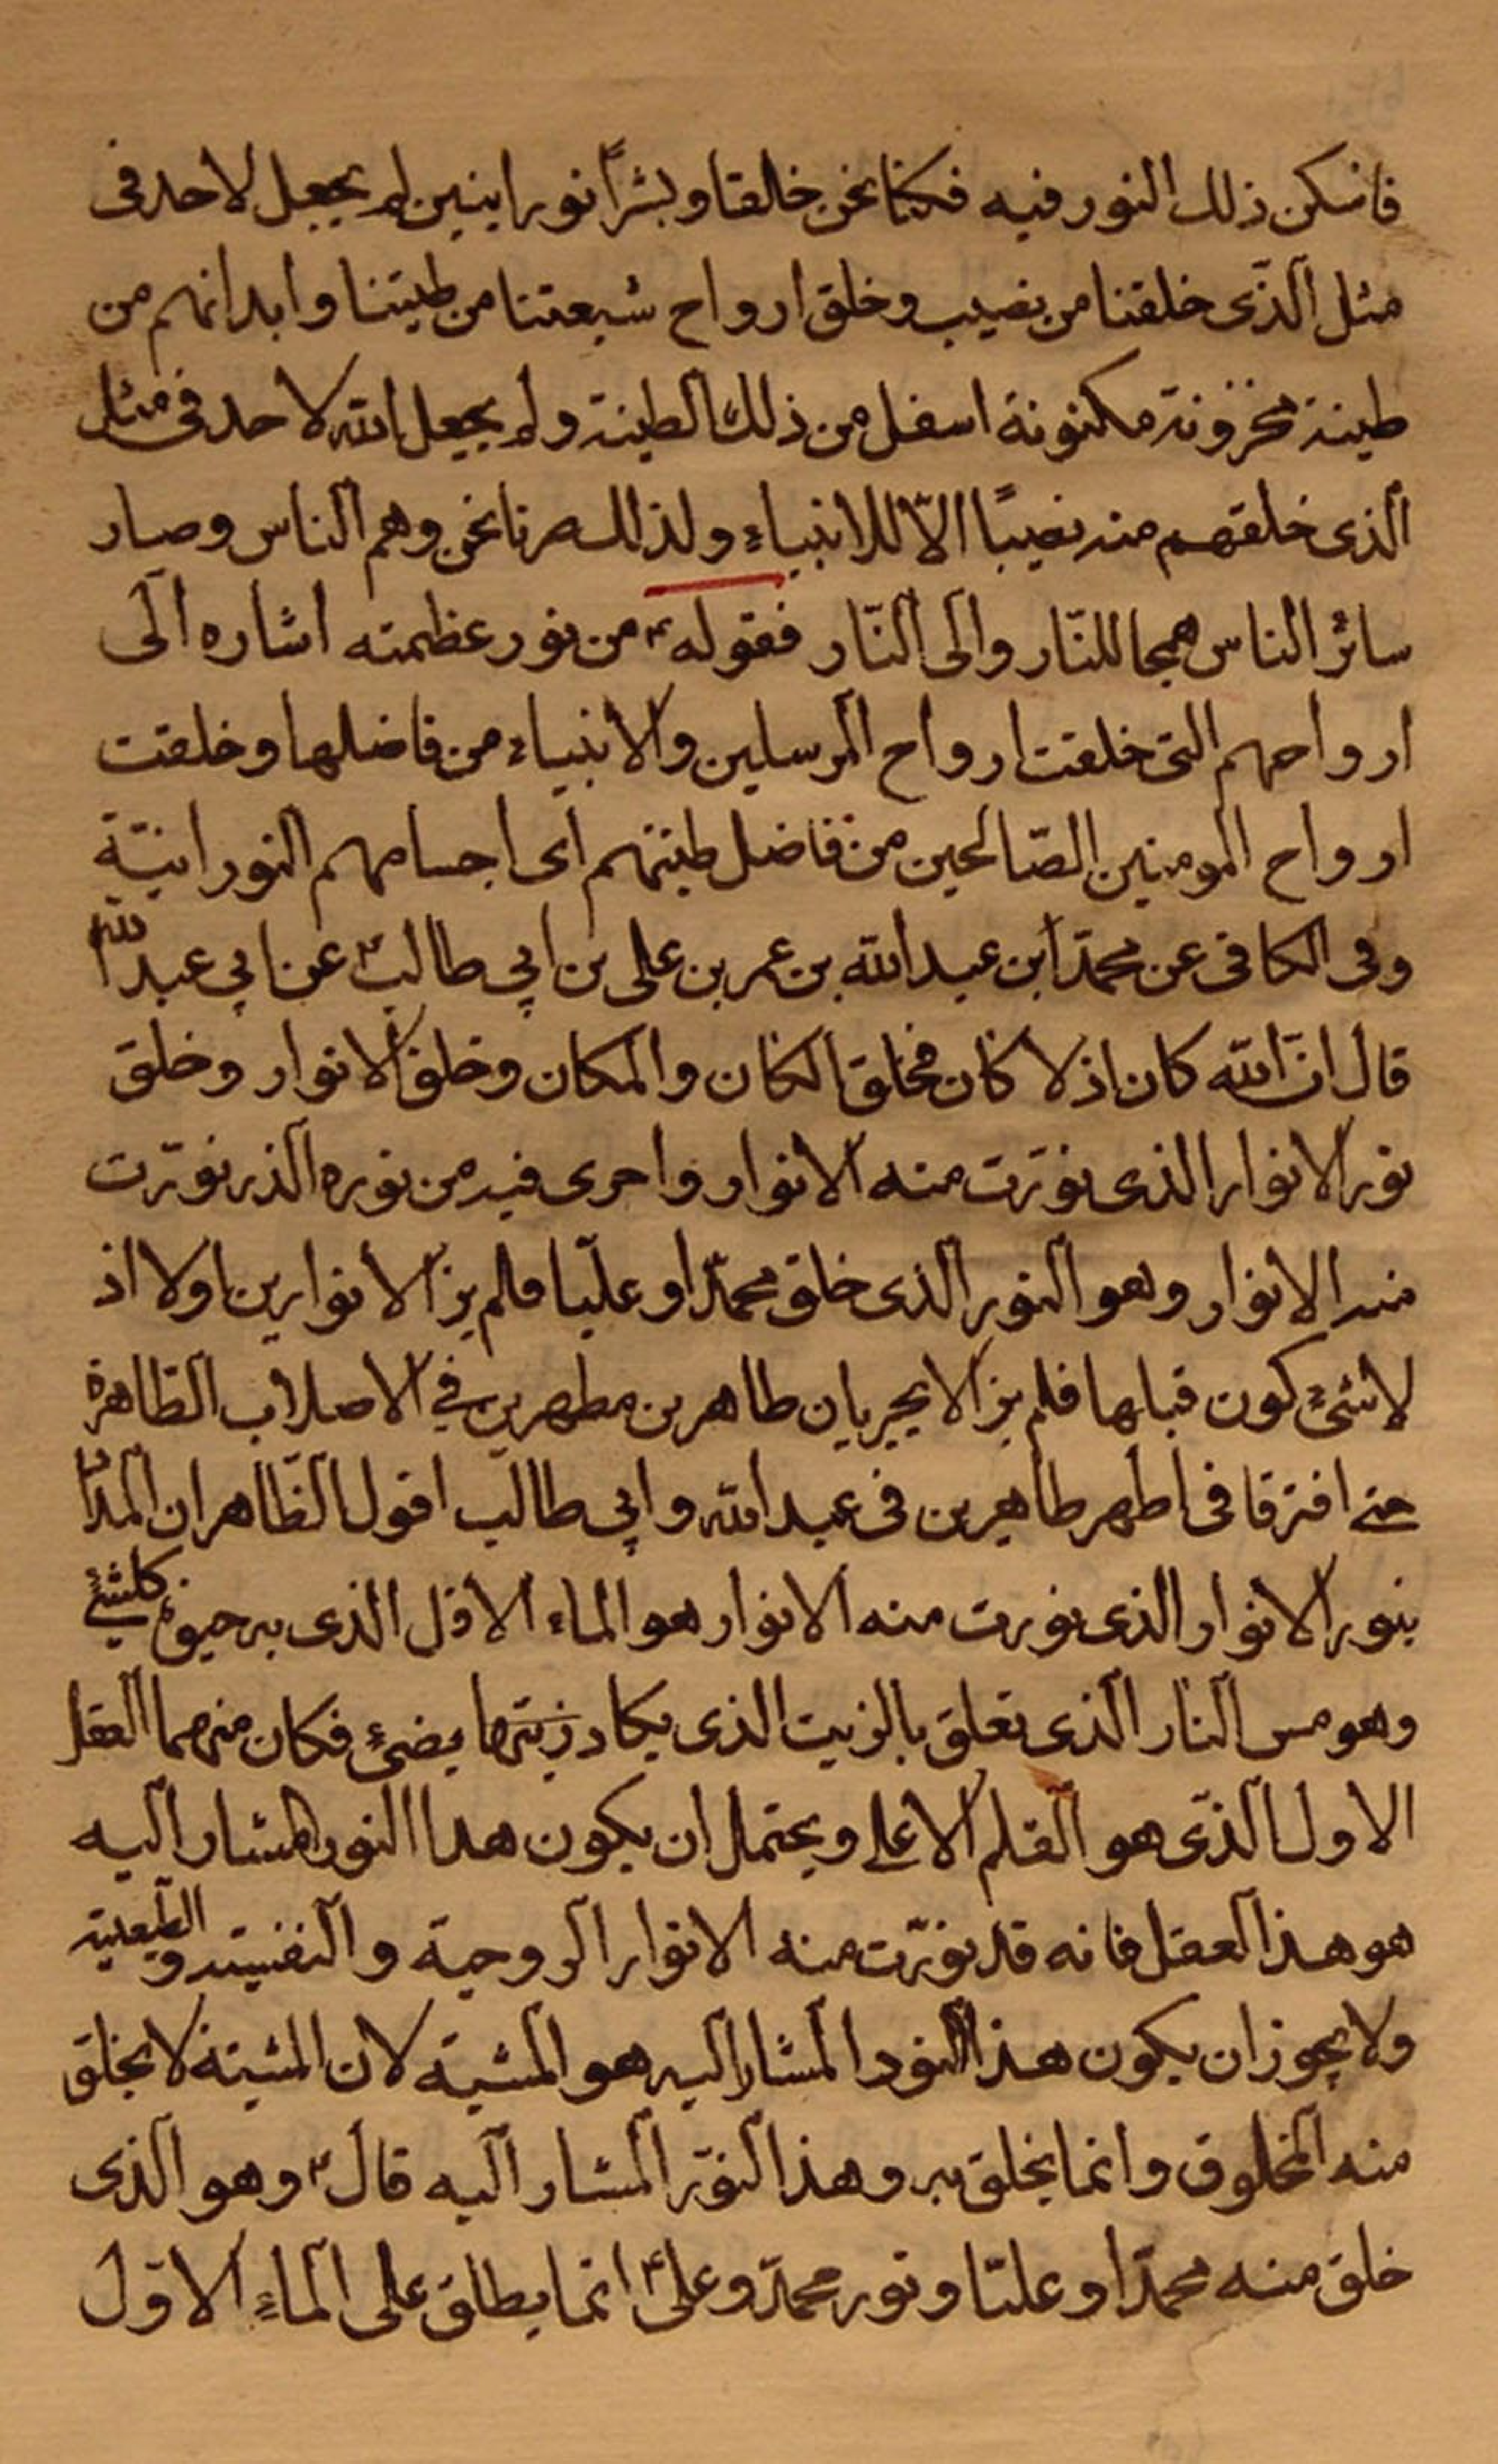 فاسكن ذلك النور فيه فكنا نحن خلقا وبشراً نورانيين لم يجعل لاحد فى
مثل الّذى خلقنا من نصيب وخلق ارواح شيعتنا من طينتنا وابدانهم من
طينة مخزونة مكنونة اسفل من ذلك الطينة ولم يجعل الله لاحد فى مثل
الذى خلقهم منه نصيبًا الّا للانبياء ولذلك صرنا نحن وهم الناس وصار
سائر الناس همجا للنّار والى النّار فقوله ع من نور عظمته اشاره الى
ارواحهم التى خلقت ارواح المرسلين والانبياء من فاضلها وخلقت
ارواح المومنين الصّالحين من فاضل طينتهم اى اجسامهم النورانيّة
وفى الكافى عن محمّد ابن عبد الله بن عمر بن على بن ابي طالب ع عن ابي عبد الله
قال انّ الله كان اذ لا كان فخلق الكان والمكان وخلق الانوار وخلق
نور الانوار الذى نوّرت منه الانوار واجرى فيه من نوره الذى نوّرت
منه الانوار وهو النور الذى خلق محمّدا وعليّا فلم يزالا نورين اولا اذ
لا شئ كون قبلها فلم يزالا يجريان طاهرين مطهرين في الاصلاب الطاهرة
حتى افترقا فى اطهر طاهرين فى عبد الله وابي طالب اقول الظّاهر ان المراد
بنور الانوار الذى نورت منه الانوار هو الماء الاوّل الذى به حيوة كلشئ
وهو مس النار الّذى تعلق بالزيت الذى يكاد زيتها يضئ فكان منهما العقل
الاول الّذى هو القلم الاعلى ويحتمل ان يكون هذا النور المشار اليه
هو هذا العقل فانه قد نوّرت منه الانوار الروحية والنفسيه والطبيعية
ولا يجوز ان يكون هذا النور المشار اليه هو المشية لان المشية لا يخلق
منه المخلوق وانما يخلق به وهذا النوّر المشار اليه قال ع وهو الذى
خلق منه محمّدا وعليّا ونور محمّد وعلى ع انّما يطلق على الماء الاوّل